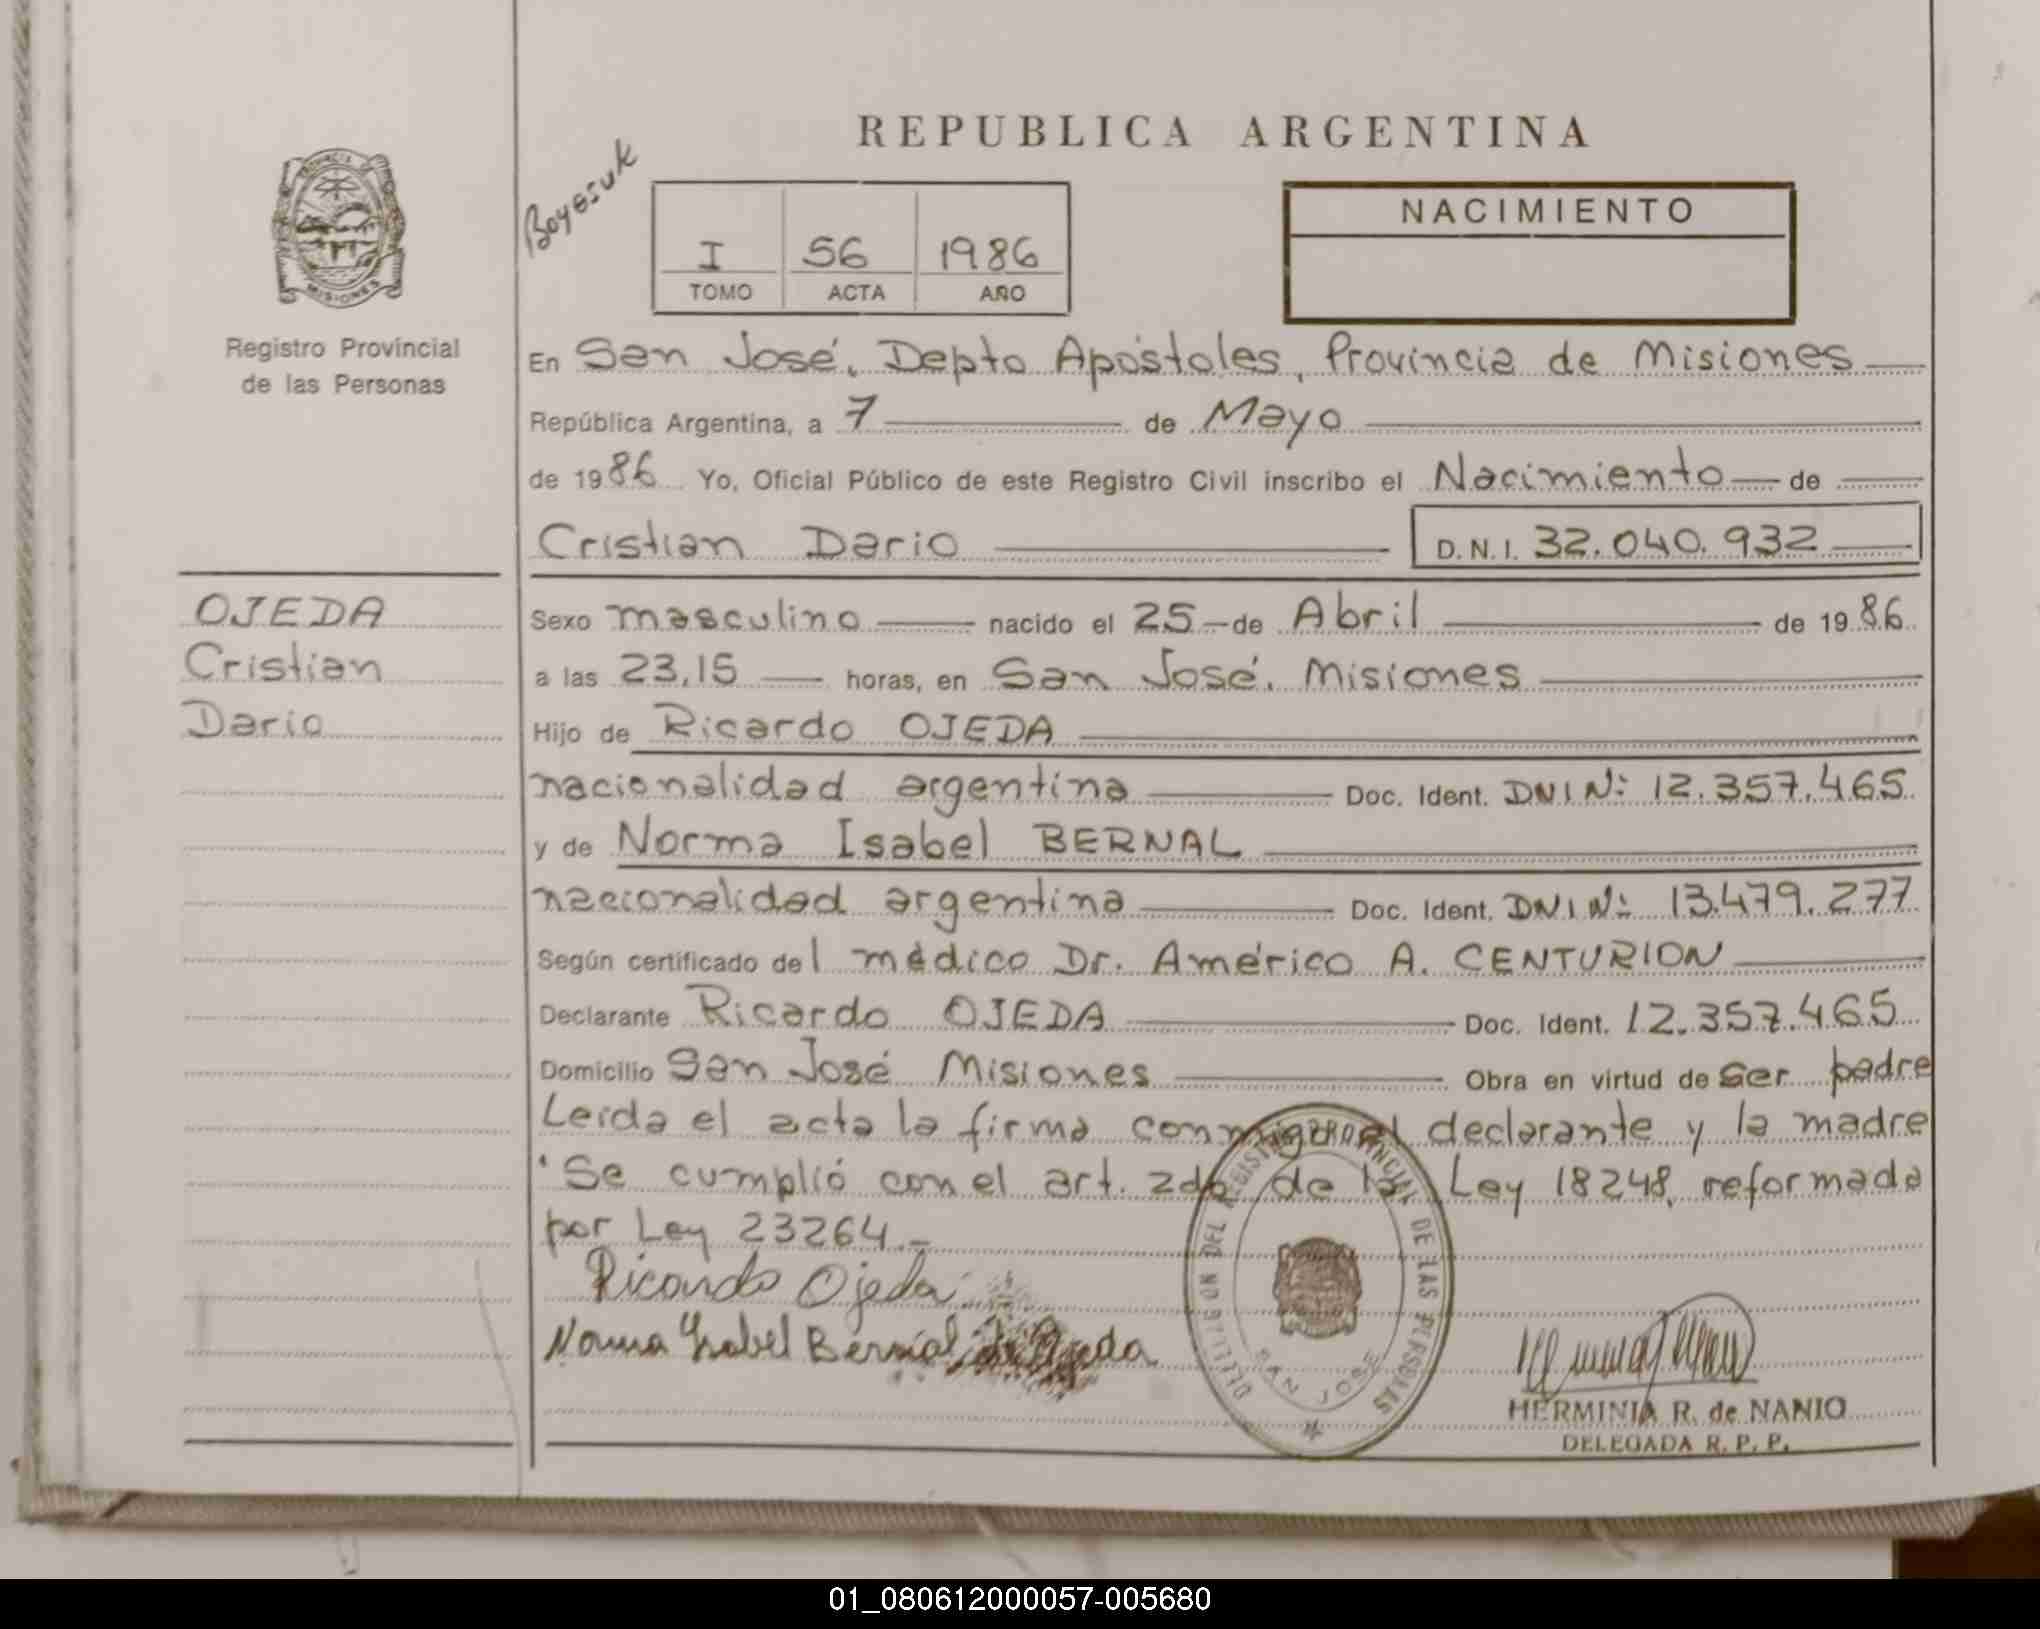 REPUBLICA ARGENTINA
Boyesuk
NACIMIENTO
I 56 1986
TOMO ACTA AÑO
PROVINCIA DE MISIONES
Registro Provincial
de las Personas
En San José, Depto Apóstoles, Provincia de Misiones
República Argentina, a 7 de Mayo
de 1986 Yo, Oficial Público de este Registro Civil inscribo el Nacimiento de
Cristian Dario D.N.I. 32.040.932
OJEDA
Cristian
Dario
Sexo masculino nacido el 25 de Abril de 1986
a las 23,15 horas, en San José. Misiones
Hijo de Ricardo OJEDA
nacionalidad argentina Doc. Ident. DNI N: 12.357.465
y de Norma Isabel BERNAL
nacionalidad argentina Doc. Ident. DNI N: 13.479.277
Según certificado del médico Dr. Américo A. CENTURION
Declarante Ricardo OJEDA Doc. Ident. 12.357.465
Domicilio San José Misiones Obra en virtud de ser padre
Leida el acta la firma conmigo el declarante y la madre
Se cumplió con el art. 2do de la Ley 18248, reformada
por Ley 23264.-
Ricardo Ojeda
Norma Ysabel Bernal de Ojeda
DELEGACION DEL REGISTRO PROVINCIAL DE LAS PERSONAS
SAN JOSE
HERMINIA R. de NANIO
DELEGADA R. P. P.
01_080612000057-005680